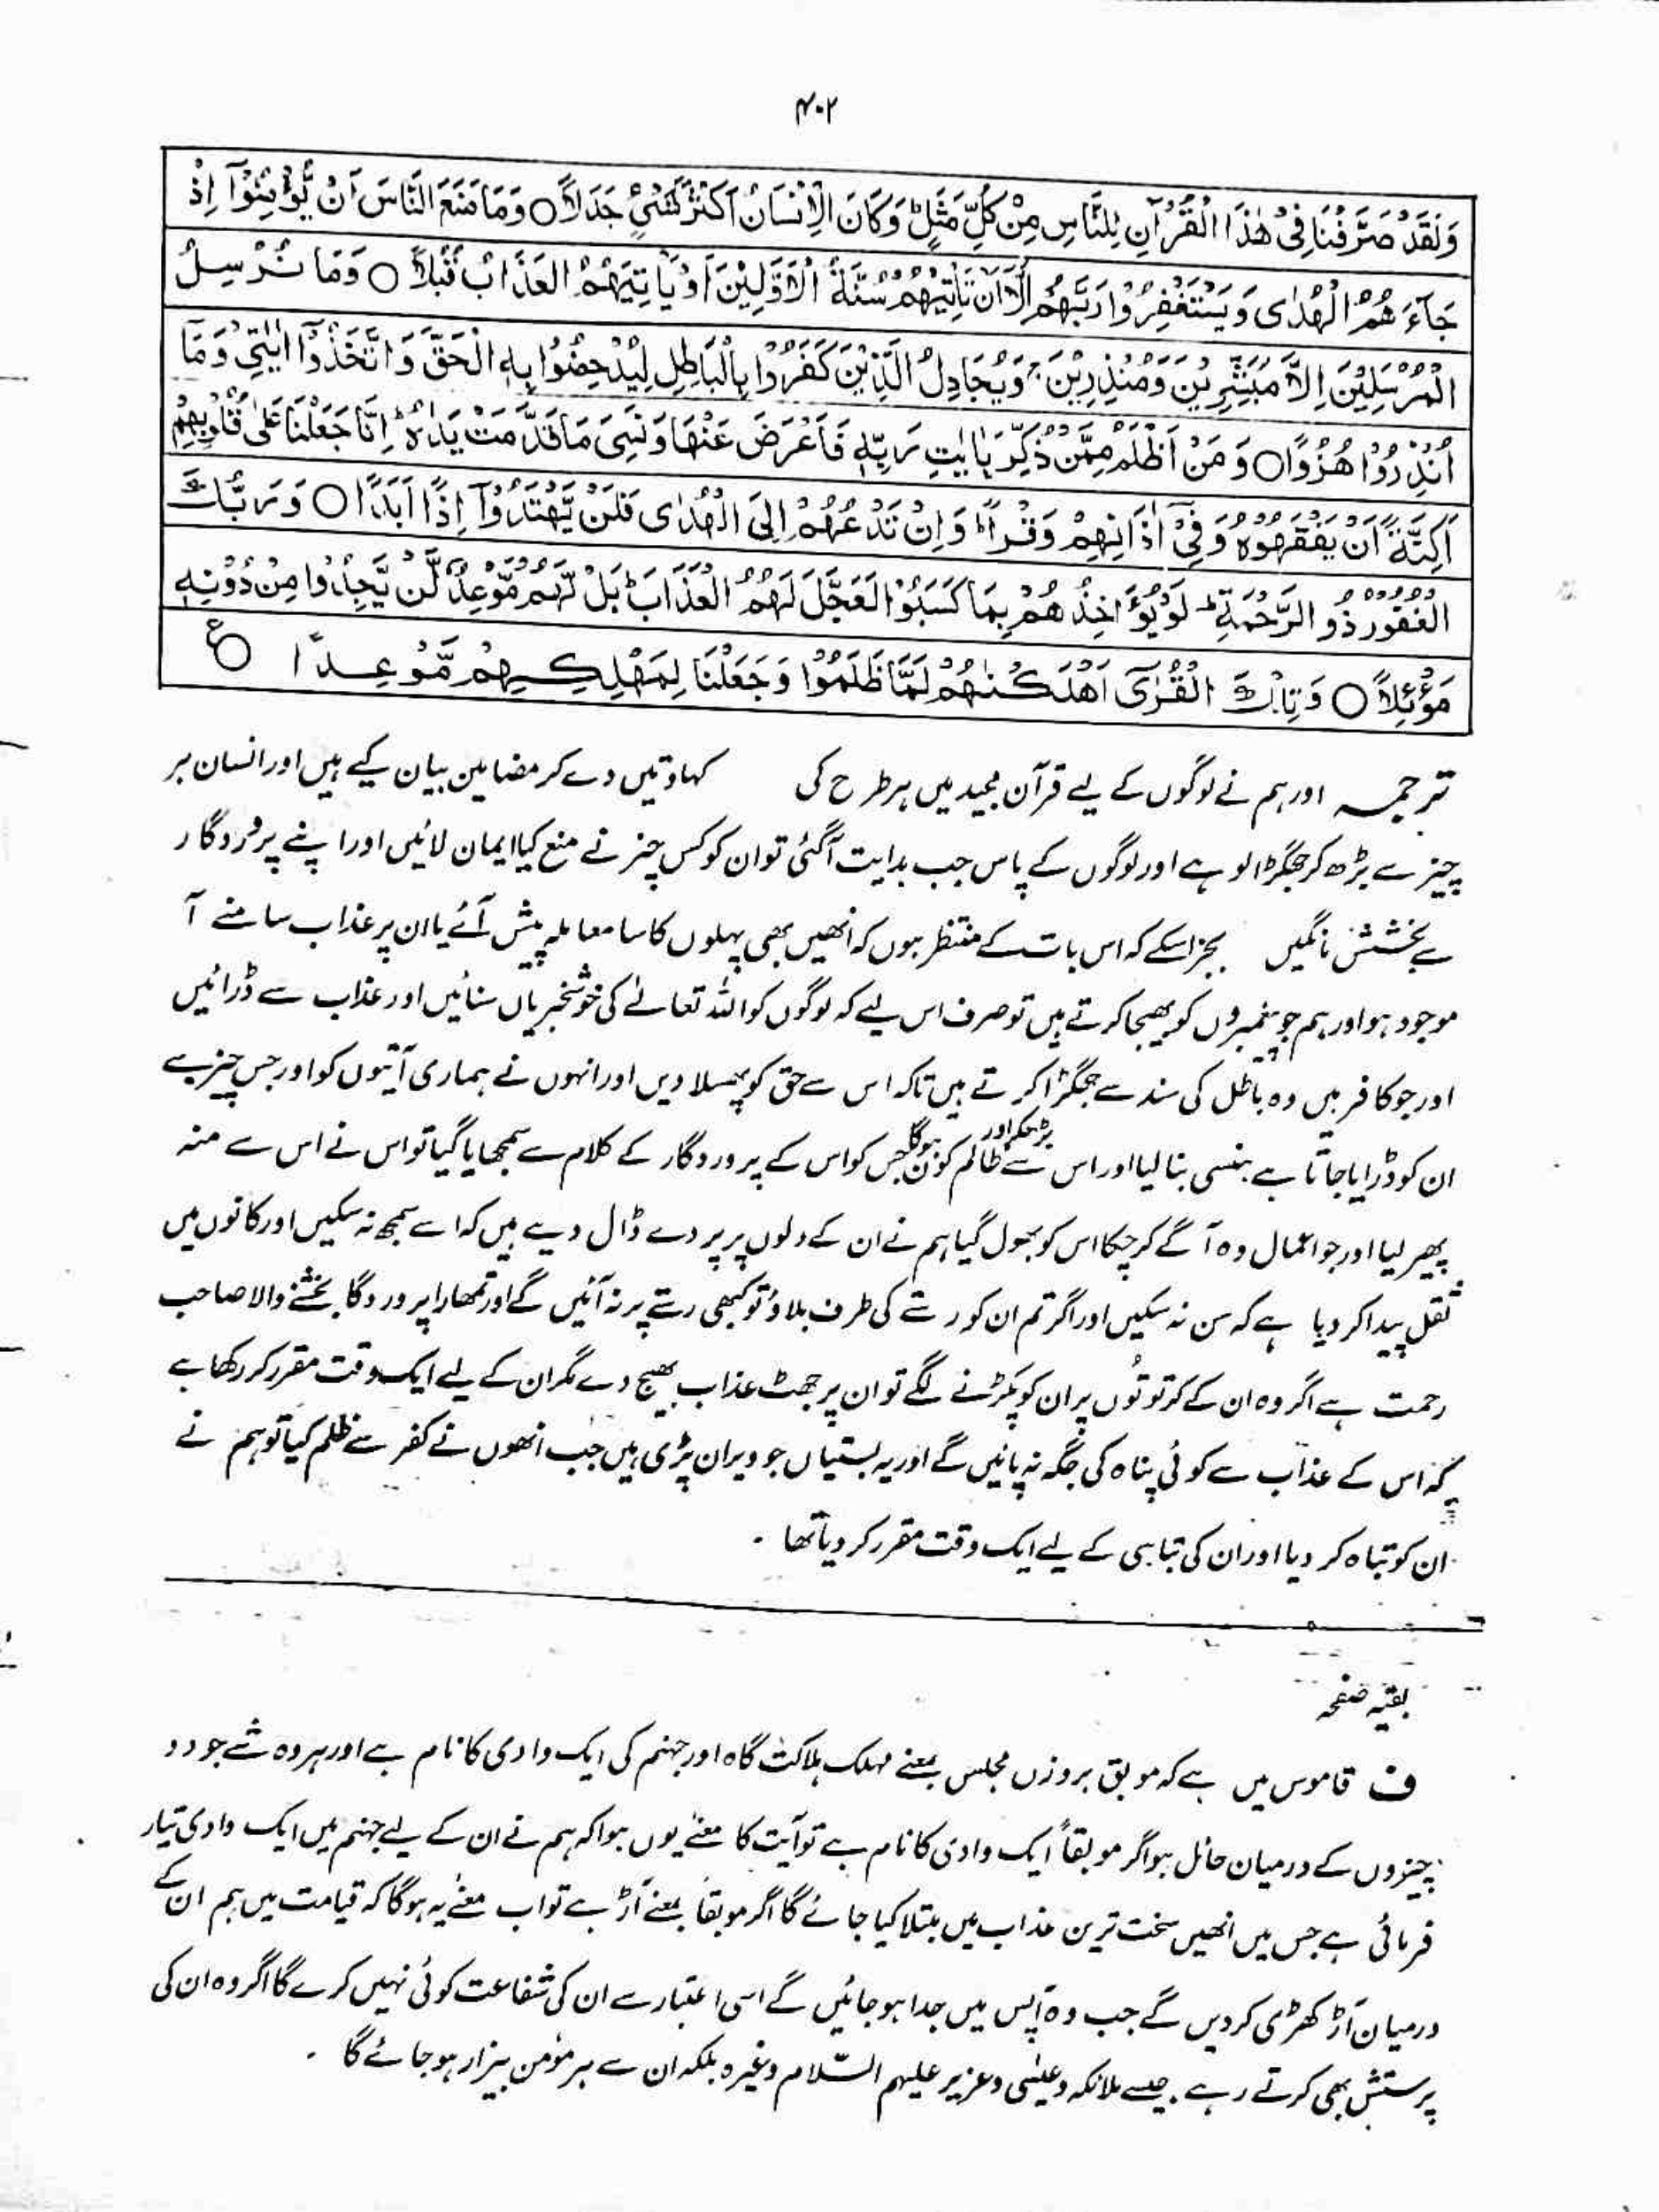 ۴۰۲
وَلَقَدْ صَرَّفْنَا فِیْ هٰذَا الْقُرْآنِ لِلنَّاسِ مِنْ كُلِّ مَثَلٍ ؕ وَكَانَ الْاِنْسَانُ اَكْثَرَ شَیْءٍ جَدَلًا ○ وَمَا مَنَعَ النَّاسَ اَنْ یُّؤْمِنُوْٓا اِذْ
جَآءَ هُمُ الْهُدٰی وَیَسْتَغْفِرُوْا رَبَّهُمْ اِلَّا اَنْ تَاْتِیَهُمْ سُنَّةُ الْاَوَّلِیْنَ اَوْ یَاْتِیَهُمُ الْعَذَابُ قُبُلًا ○ وَمَا نُرْسِلُ
الْمُرْسَلِیْنَ اِلَّا مُبَشِّرِیْنَ وَمُنْذِرِیْنَ ۚ وَیُجَادِلُ الَّذِیْنَ كَفَرُوْا بِالْبَاطِلِ لِیُدْحِضُوْا بِهِ الْحَقَّ وَاتَّخَذُوْٓا اٰیٰتِیْ وَمَا
اُنْذِرُوْا هُزُوًا ○ وَمَنْ اَظْلَمُ مِمَّنْ ذُكِّرَ بِاٰیٰتِ رَبِّهٖ فَاَعْرَضَ عَنْهَا وَنَسِیَ مَا قَدَّمَتْ یَدٰهُ ؕ اِنَّا جَعَلْنَا عَلٰی قُلُوْبِهِمْ
اَكِنَّةً اَنْ یَفْقَهُوْهُ وَفِیْٓ اٰذَانِهِمْ وَقْرًا ؕ وَاِنْ تَدْعُهُمْ اِلَی الْهُدٰی فَلَنْ یَّهْتَدُوْٓا اِذًا اَبَدًا ○ وَرَبُّكَ
الْغَفُوْرُ ذُو الرَّحْمَةِ ؕ لَوْ یُؤَاخِذُ هُمْ بِمَا كَسَبُوْا لَعَجَّلَ لَهُمُ الْعَذَابَ ؕ بَلْ لَّهُمْ مَّوْعِدٌ لَّنْ یَّجِدُوْا مِنْ دُوْنِهٖ
مَوْئِلًا ○ وَتِلْكَ الْقُرٰٓی اَهْلَكْنٰهُمْ لَمَّا ظَلَمُوْا وَجَعَلْنَا لِمَهْلِكِهِمْ مَّوْعِدًا ○ ع
ترجمہ اور ہم نے لوگوں کے لیے قرآن مجید میں ہر طرح کی کہاوتیں دے کر مضامین بیان کیے ہیں اور انسان ہر
چیز سے بڑھ کر جھگڑالو ہے اور لوگوں کے پاس جب ہدایت آگئی تو ان کو کس چیز نے منع کیا ایمان لائیں اور اپنے پروردگار
سے بخشش مانگیں بجز اسکے کہ اس بات کے منتظر ہوں کہ انھیں بھی پہلوں کا سا معاملہ پیش آئے یا ان پر عذاب سامنے آ
موجود ہو اور ہم جو پیغمبروں کو بھیجا کرتے ہیں تو صرف اس لیے کہ لوگوں کو اللہ تعالیٰ کی خوشخبریاں سنائیں اور عذاب سے ڈرائیں
اور جو کافر ہیں وہ باطل کی سند سے جھگڑا کرتے ہیں تاکہ اس سے حق کو پھسلا دیں اور انہوں نے ہماری آیتوں کو اور جس چیز سے
ان کو ڈرایا جاتا ہے ہنسی بنا لیا اور اس سے بڑھکر اور ظالم کون ہوگا جس کو اس کے پروردگار کے کلام سے سمجھایا گیا تو اس نے اس سے منہ
پھیر لیا اور جو اعمال وہ آگے کر چکا اس کو بھول گیا ہم نے ان کے دلوں پر پردے ڈال دیے ہیں کہ اسے سمجھ نہ سکیں اور کانوں میں
ثقل پیدا کر دیا ہے کہ سن نہ سکیں اور اگر تم ان کو رستے کی طرف بلاؤ تو کبھی رستے پر نہ آئیں گے اور تمھارا پروردگا بخشنے والا صاحب
رحمت ہے اگر وہ ان کے کرتوتوں پر ان کو پکڑنے لگے تو ان پر جھٹ عذاب بھیج دے مگر ان کے لیے ایک وقت مقرر کر رکھا ہے
کہ اس کے عذاب سے کوئی پناہ کی جگہ نہ پائیں گے اور یہ بستیاں جو ویران پڑی ہیں جب انھوں نے کفر سے ظلم کیا تو ہم نے
ان کو تباہ کر دیا اور ان کی تباہی کے لیے ایک وقت مقرر کر دیا تھا ۔
بقیہ صفحہ
ف قاموس میں ہے کہ موبق بروزن مجلس بمعنے مہلک ہلاکت گاہ اور جہنم کی ایک وادی کا نام ہے اور ہر وہ شے جو دو
چیزوں کے درمیان حائل ہو اگر موبقاً ایک وادی کا نام ہے تو آیت کا معنے یوں ہوا کہ ہم نے ان کے لیے جہنم میں ایک وادی تیار
فرمائی ہے جس میں انھیں سخت ترین عذاب میں مبتلا کیا جائے گا اگر موبقاً بمعنے آڑ ہے تو اب معنے یہ ہوگا کہ قیامت میں ہم ان کے
درمیان آڑ کھڑی کر دیں گے جب وہ آپس میں جدا ہو جائیں گے اسی اعتبار سے ان کی شفاعت کوئی نہیں کرے گا اگر وہ ان کی
پرستش بھی کرتے رہے ۔ جیسے ملائکہ و عیسٰی و عزیر علیہم السّلام وغیرہ بلکہ ان سے ہر مؤمن بیزار ہو جائے گا ۔